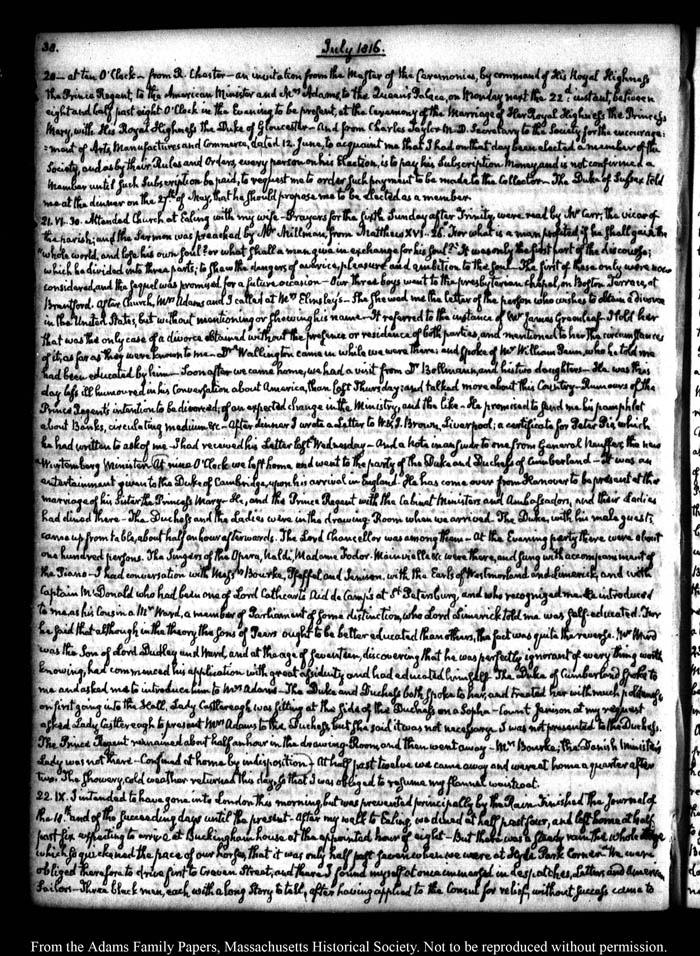 38.
July 1816.
20— at ten O'Clock— from R. Chester— an invitation from the Master of the Ceremonies, by command of His Royal Highness
the Prince Regent, to the American Minister and Mrs Adams, to the Queen's Palace, on Monday next the 22d. instant, between
eight and half past eight O'Clock in the Evening to be present, at the Ceremony of the Marriage of Her Royal Highness the Princess
Mary, with His Royal Highness the Duke of Gloucester— And from Charles Taylor M.D. Secretary to the Society for the encourage:
:ment of Arts, Manufactures and Commerce, dated 12. June, to acquaint me that I had on that day been elected a member of the
Society, and as by their Rules and Orders, every person on his Election, is to pay his Subscription Money, and is not confirmed a
Member until such Subscription be paid, to request me to order such payment to be made to the Collector— The Duke of Sussex told
me at the dinner on the 27th of May, that he should propose me to be elected as a member.
21. VI. 30. Attended Church at Ealing with my wife— Prayers for the sixth Sunday after Trinity, were read by Mr Carr, the vicar of
the parish; and the Sermon was preached by Mr Millman, from Matthew XVI. 26. For what is a man profited if he shall gain the
"whole world, and lose his own Soul? or what shall a man give in exchange for his Soul?" It was only the first part of the discourse;
which he divided into three parts; to shew the dangers of avarice, pleasure and ambition to the Soul— The first of these only were now
considered, and the sequel was promised for a future occasion— Our three boys went to the presbyterian Chapel, on Boston Terrace, at
Brentford. After Church, Mrs Adams and I called at Mrs Elmsley's— She shewed me the letter of the person who wishes to obtain a divorce
in the United States, but without mentioning or shewing his name— It referred to the instance of Mr James Greenleaf— I told her
that was the only case of a divorce obtained without the presence or residence of both parties, and mentioned to her the circumstances
of it, as far as they were known to me— Dr Wallington came in while we were there; and spoke of Mr William Penn, who he told me
had been educated by him— Soon after we came home, we had a visit from Dr Bollmann, and his two daughters— He was this
day less ill humoured in his Conversation about America, than last Thursday; and talked more about this Country— Rumours of the
Prince Regent's intention to be divorced; of an expected change in the Ministry, and the like— He promised to send me his pamphlet
about Banks, circulating medium &c— After dinner I wrote a Letter to W. & J. Brown, Liverpool; a certificate for Peter which
he had written to ask of me— I had received his Letter last Wednesday— And a Note in answer to one from General the new
Wurtemberg Minister. At nine O'Clock we left home and went to the party of the Duke and Duchess of Cumberland— It was an
entertainment given to the Duke of Cambridge, upon his arrival in England. He has come over from Hanover to be present at the
marriage of his Sister the Princess Mary— He, and the Prince Regent with the Cabinet Ministers and Ambassadors, and their Ladies
had dined there— The Duchess and the Ladies were in the drawing-Room when we arrived. The Duke, with his male guests,
came up from table, about half an hour afterwards. The Lord Chancellor was among them— At the Evening party there were about
one hundred persons. The Singers of the Opera, Naldi, Madame Fodor-Mainvielle &c were there, and sung with accompaniment of
the Piano— I had conversation with Messrs Bourke, Pfeffel and Jenison, with the Earls of Westmorland and Limerick, and with
Captain McDonald who had been one of Lord Cathcart's Aid de Camps at St Petersburg, and who recognized me— He introduced
to me as his Cousin a Mr Ward, a member of Parliament of some distinction, who Lord Limerick told me was self-educated. For
he said that although in the theory the Sons of Peers ought to be better educated than others, the fact was quite the reverse. Mr Ward
was the Son of Lord Dudley and Ward, and at the age of seventeen, discovering that he was perfectly ignorant of every thing worth
knowing, had commenced his application with great assiduity and had educated himself. The Duke of Cumberland spoke to
me and asked me to introduce him to Mrs Adams— The Duke and Duchess both spoke to her, and treated her with much politeness
on first going into the Hall. Lady Castlereagh was sitting at the side of the Duchess on a Sopha— Count Jenison at my request
asked Lady Castlereagh to present Mrs Adams to the Duchess, but she said it was not necessary. I was not presented to the Duchess.
The Prince Regent remained about half an hour in the drawing-Room, and then went away— Mrs Bourke, the Danish Minister's
Lady was not there— Confined at home by indisposition— At half past twelve we came away and were at home a quarter after
two. The Showery, cold weather returned this day, so that I was obliged to resume my flannel waistcoat.
22. IX. I intended to have gone into London this morning, but was prevented principally by the Rain. Finished the Journal of
the 18th and of the succeeding days until the present— After my walk to Ealing, we dined at half past four, and left home at half
past six expecting to arrive at Buckingham house at the appointed hour of eight— But there was a steady rain the whole
which so quickened the pace of our horses, that it was only half past seven when we were at Hyde Park Corner— We were
obliged therefore to drive first to Craven Street; and there I found myself at once immersed in despatches, Letters and American
Sailors— Three black men, each with a long Story to tell, after having applied to the Consul for relief, without success came to
From the Adams Family Papers, Massachusetts Historical Society. Not to be reproduced without permission.